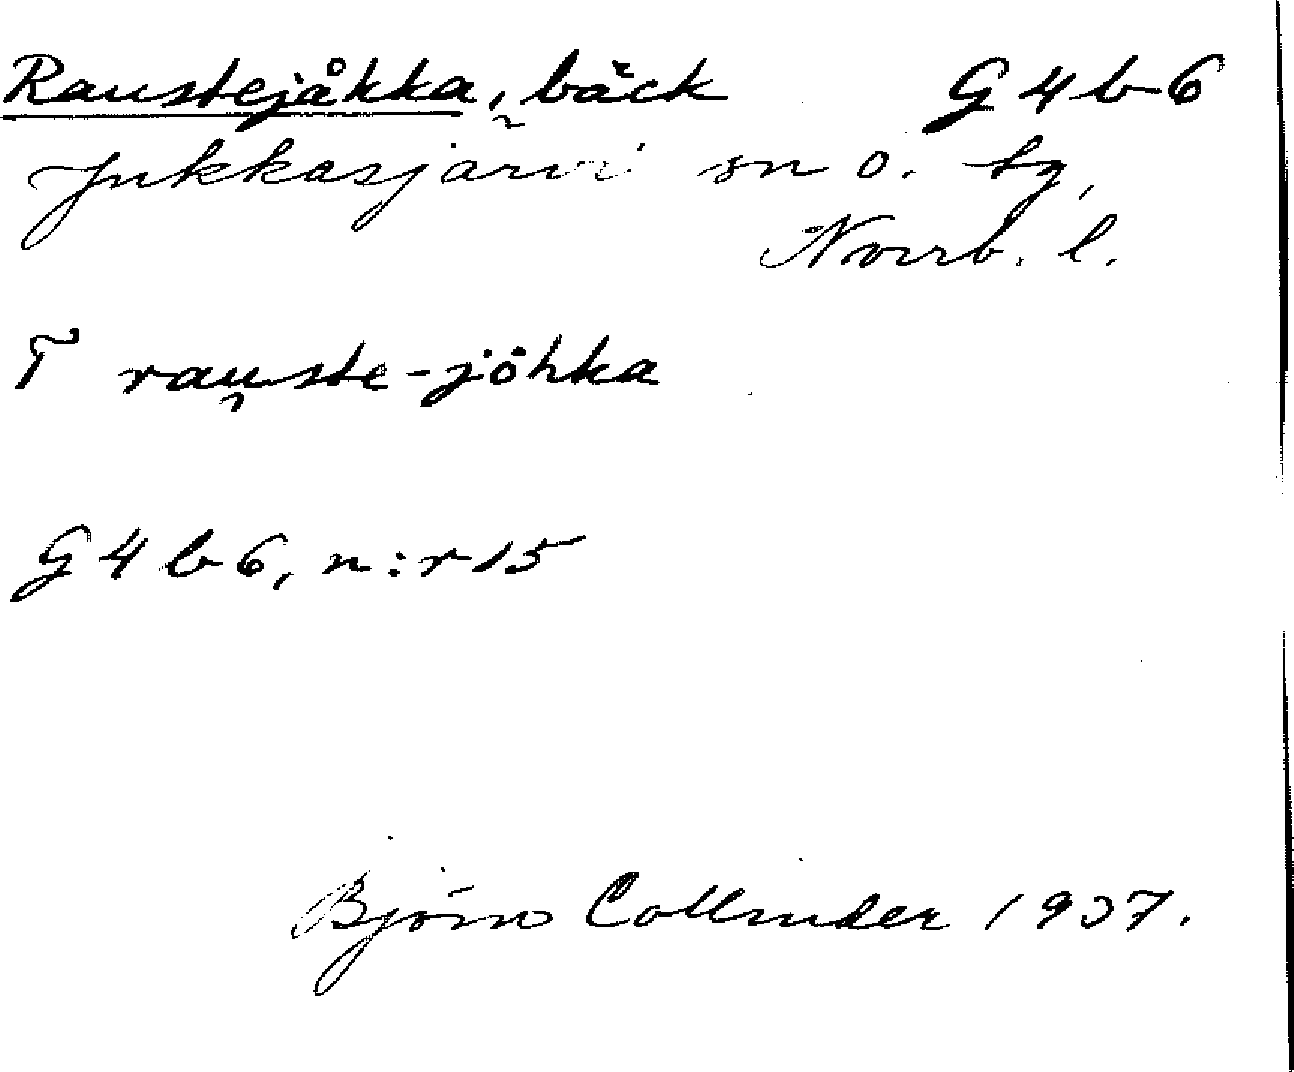 Raustejåkka, bäck G4b6
Jukkasjärvi sn o. tg,
Norrb. l.
T rau̯ste-jòhka
G4b6, n:r 15
Björn Collinder 1937.